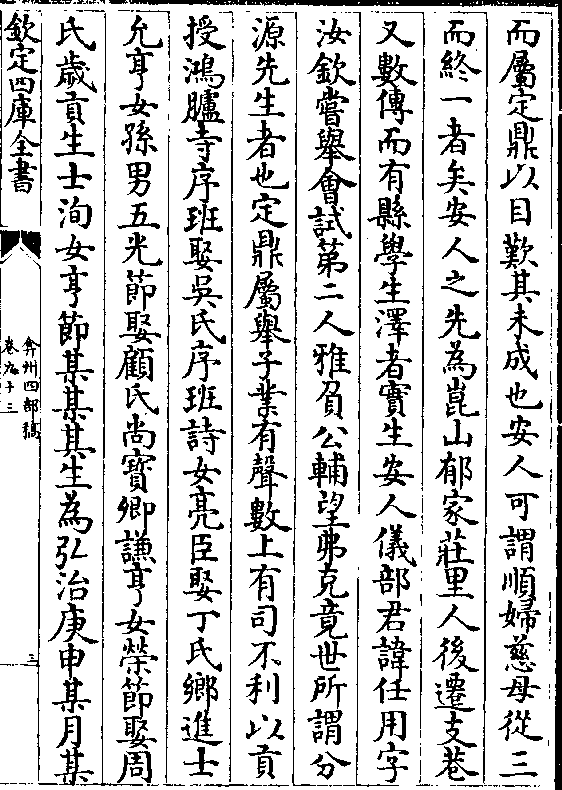 而屬定鼎以目歎其未成也安人可謂順婦慈母從三
而終一者矣安人之先為崑山郁家莊里人後遷支巷
又數傳而有縣學生澤者實生安人儀部君諱任用字
汝欽嘗舉會試第二人雅負公輔望弗克竟世所謂分
源先生者也定鼎屬舉子業有聲數上有司不利以貢
授鴻臚寺序班娶吳氏序班詩女亮臣娶丁氏鄉進士
允亨女孫男五光節娶顧氏尚寶卿謙亨女榮節娶周
氏歲貢生士洵女亨節某某其生為弘治庚申某月某
欽定四庫全書
弇州四部稿
卷九十三
三